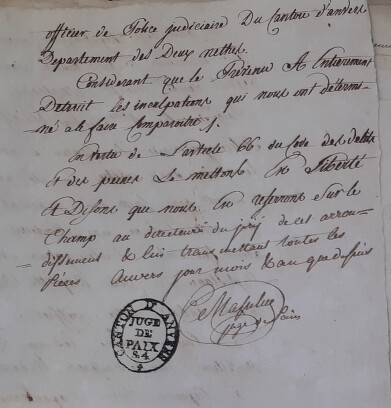 officier de Police judiciaire Du Canton d'anvers
Departement des Deux nethes.
Considerant que le Prévenu A Entierement
Detruit les inculpations qui nous ont détermi-
né a le faire Comparoitre
En vertu de L'article 66 du Code des delits
Et des peines Le mettons En Liberté
Et Disons que nous En referons Sur le
Champ au directeur du jury de cet arron-
= dissement & lui transmettons toutes les
pièces Anvers jour mois & an que dessus
juge de Paix
CANTON D'ANVERS
JUGE
DE
PAIX
S.4